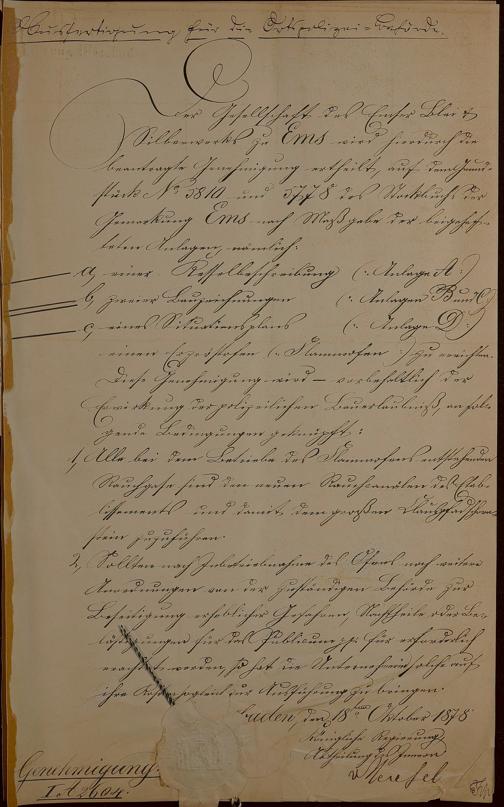 Ausfertigung für die Ortspolizei-Behörde.
Der Gesellschaft des Emser Blei &
Silberwerks zu Ems wird hierdurch die
beantragte Genehmigung ertheilt, auf dem Grund-
stück No 5810 und 5778 des Stockbuchs der
Gemarkung Ems nach Maßgabe der beigehef-
teten Anlagen, nämlich:
a, einer Kesselbeschreibung (: Anlage A :)
b, zweier Bauzeichnungen (: Anlagen B und C :)
c, eines Situationsplans (: Anlage D :)
einen (: Flammofen :) zu errichten.
Diese Genehmigung wird – vorbehaltlich der
Erwirkung der polizeilichen Bauerlaubniß, an fol-
gende Bedingungen geknüpft:
1, Alle bei dem Betriebe des Flammofens entstehenden
Rauchgase sind den neuen Rauchkanälen des Etab-
lissements und damit dem großen
stein zuzuführen.
2, Sollten nach Inbetriebnahme des Ofens noch weitere
Anordnungen von der zuständigen Behörde zur
Beseitigung erheblicher Gefahren, Nachtheile oder Be-
lästigungen für das Publicum pp für erforderlich
erachtet werden, so hat die Unternehmerin solche auf
ihre Kosten sogleich zur Ausführung zu bringen.
den 18ten Oktober 1878
Königliche Regierung,
Abtheilung des Innern
Genehmigung.
I.A 2604.